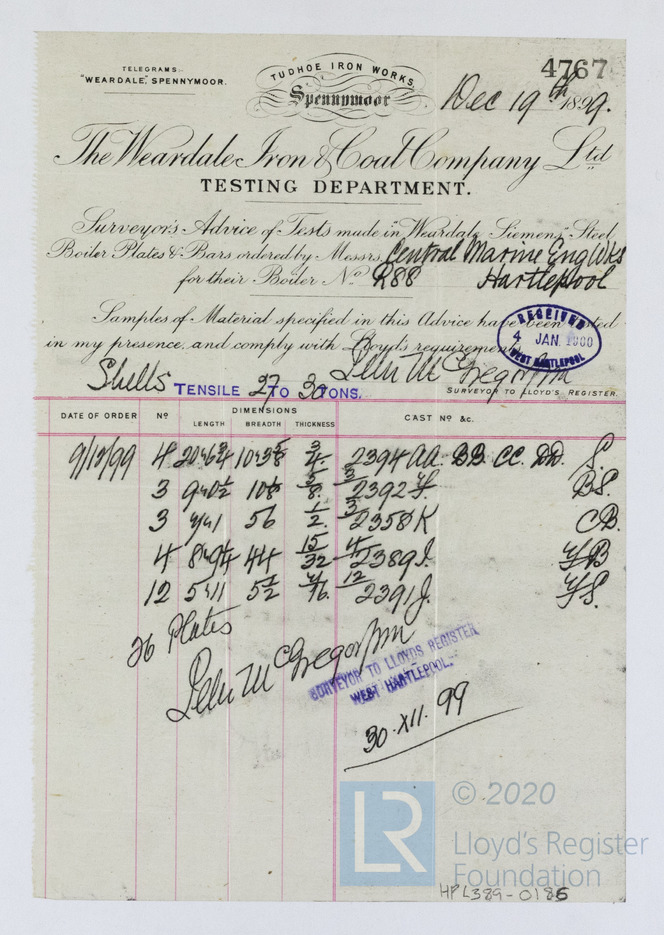 4767
TELEGRAMS:
"WEARDALE", SPENNYMOOR.
TUDHOE IRON WORKS,
Spennymoor
Dec 19th 1899.
The Weardale Iron & Coal Company Ltd
TESTING DEPARTMENT.
Surveyor's Advice of Tests made in Weardale Siemens Steel
Boiler Plates & Bars ordered by Messrs Central Marine Eng Wks
for their Boiler No. R88 Hartlepool
Samples of Material specified in this Advice have been tested
in my presence and comply with Lloyds requirements
RECEIVED
4 JAN. 1900
WEST HARTLEPOOL
SURVEYOR TO LLOYD'S REGISTER.
Shells TENSILE 27 TO 30 TONS.
DATE OF ORDER No DIMENSIONS CAST No &c.
LENGTH BREADTH THICKNESS
9/12/99 4 3/4 2394 AA. BB. CC. DD. S.
3 5/8 3 2392 B.S.
3 56 1/2 3 2358 K C.B.
4 44 15/32 4 2389 J.
12 5·11 5 1/2 12 2391 J.
26 Plates
SURVEYOR TO LLOYDS REGISTER
WEST HARTLEPOOL.
30·XII·99
LR
© 2020
Lloyd's Register
Foundation
HPL389-0186